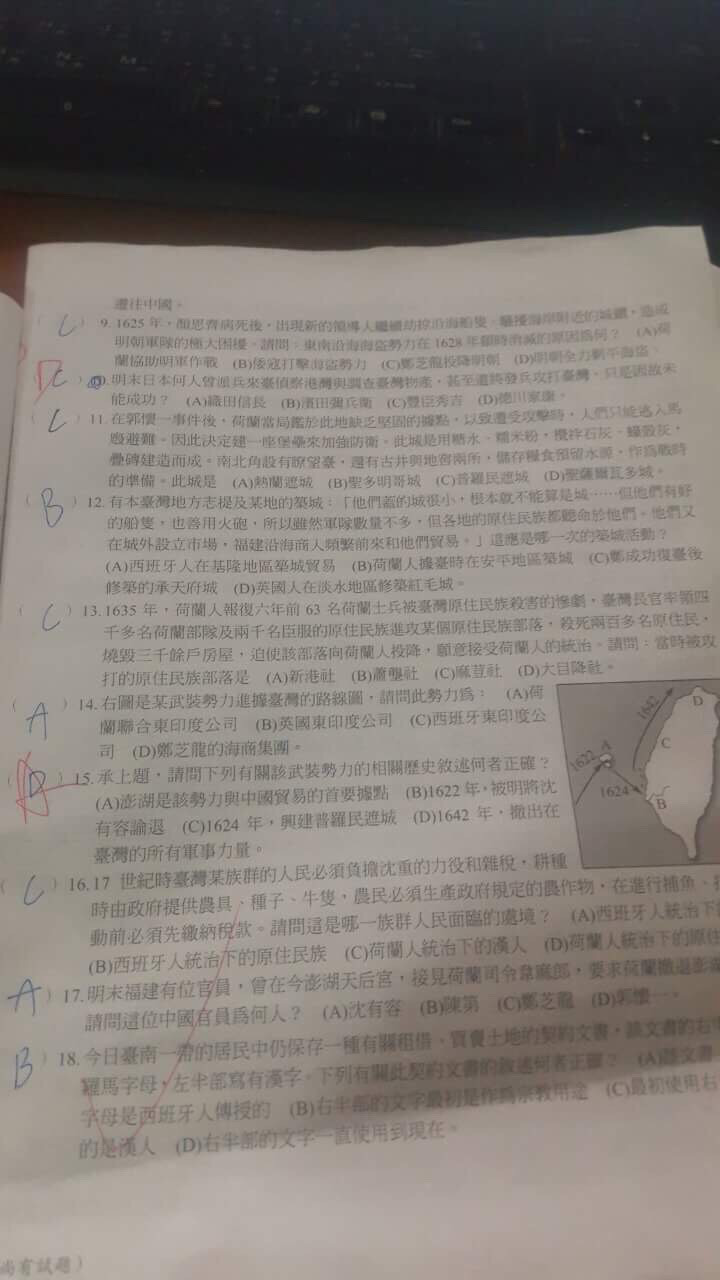 遷往中國。
( C ) 9. 1625 年，顏思齊病死後，出現新的領導人繼續劫掠沿海船隻、騷擾海岸附近的城鎮，造成
明朝軍隊的極大困擾。請問：東南沿海海盜勢力在 1628 年頓時消滅的原因為何？ (A)荷
蘭協助明軍作戰 (B)倭寇打擊海盜勢力 (C)鄭芝龍投降明朝 (D)明朝全力剿平海盜。
D C 10. 明末日本何人曾派兵來臺偵察港灣與調查臺灣物產，甚至還將發兵攻打臺灣，只是因故未
能成功？ (A)織田信長 (B)濱田彌兵衛 (C)豐臣秀吉 (D)德川家康。
( C ) 11. 在郭懷一事件後，荷蘭當局鑑於此地缺乏堅固的據點，以致遭受攻擊時，人們只能逃入馬
廄避難。因此決定建一座堡壘來加強防衛。此城是用糖水、糯米粉，攪拌石灰、蠣殼灰，
疊磚建造而成。南北角設有瞭望臺，還有古井與地窖兩所，儲存糧食預留水源，作為戰時
的準備。此城是 (A)熱蘭遮城 (B)聖多明哥城 (C)普羅民遮城 (D)聖薩爾瓦多城。
( B ) 12. 有本臺灣地方志提及某地的築城：「他們蓋的城很小，根本就不能算是城……但他們有好
的船隻，也善用火砲，所以雖然軍隊數量不多，但各地的原住民族都聽命於他們。他們又
在城外設立市場，福建沿海商人頻繁前來和他們貿易。」這應是哪一次的築城活動？
(A)西班牙人在基隆地區築城貿易 (B)荷蘭人據臺時在安平地區築城 (C)鄭成功復臺後
修築的承天府城 (D)英國人在淡水地區修築紅毛城。
( C ) 13. 1635 年，荷蘭人報復六年前 63 名荷蘭士兵被臺灣原住民族殺害的慘劇，臺灣長官率領四
千多名荷蘭部隊及兩千名臣服的原住民族進攻某個原住民族部落，殺死兩百多名原住民，
燒毀三千餘戶房屋，迫使該部落向荷蘭人投降，願意接受荷蘭人的統治。請問：當時被攻
打的原住民族部落是 (A)新港社 (B)蕭壟社 (C)麻荳社 (D)大目降社。
( A ) 14. 右圖是某武裝勢力進據臺灣的路線圖，請問此勢力為： (A)荷
蘭聯合東印度公司 (B)英國東印度公司 (C)西班牙東印度公
司 (D)鄭芝龍的海商集團。
1642
D
1622
A
C
1624
B
15. 承上題，請問下列有關該武裝勢力的相關歷史敘述何者正確？
(A)澎湖是該勢力與中國貿易的首要據點 (B)1622 年，被明將沈
有容諭退 (C)1624 年，興建普羅民遮城 (D)1642 年，撤出在
臺灣的所有軍事力量。
( C ) 16. 17 世紀時臺灣某族群的人民必須負擔沈重的力役和雜稅，耕種
時由政府提供農具、種子、牛隻，農民必須生產政府規定的農作物，在進行捕魚、
動前必須先繳納稅款。請問這是哪一族群人民面臨的處境？ (A)西班牙人統治下
(B)西班牙人統治下的原住民族 (C)荷蘭人統治下的漢人 (D)荷蘭人統治下的原住
( A ) 17. 明末福建有位官員，曾在今澎湖天后宮，接見荷蘭司令韋麻郎，要求荷蘭撤退澎
請問這位中國官員為何人？ (A)沈有容 (B)陳第 (C)鄭芝龍 (D)郭懷一。
( B ) 18. 今日臺南一帶的居民中仍保存一種有關租借、買賣土地的契約文書，該文書的右
羅馬字母，左半部寫有漢字。下列有關此契約文書的敘述何者正確？ (A)該文書
字母是西班牙人傳授的 (B)右半部的文字最初是作為宗教用途 (C)最初使用右
的是漢人 (D)右半部的文字一直使用到現在。
尚有試題）